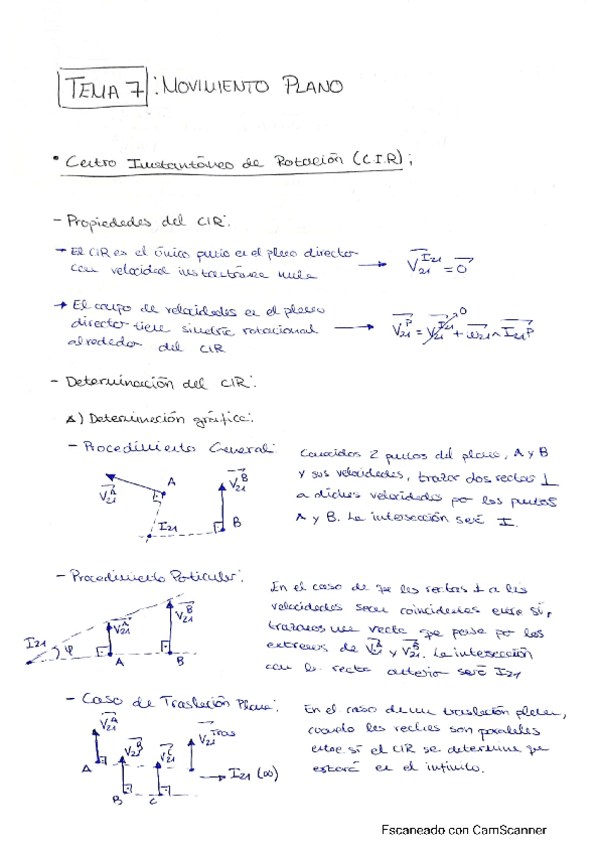 TEMA 7: MOVIMIENTO PLANO
• Centro Instantáneo de Rotación (C.I.R):
- Propiedades del CIR:
→ El CIR es el único punto en el plano director
con velocidad instantánea nula → V21^I21 = 0
→ El campo de velocidades en el plano
director tiene simetría rotacional
alrededor del CIR → V21^P = V21^I21 + ω21 ∧ I21P
0
- Determinación del CIR:
A) Determinación gráfica:
- Procedimiento General:
Conocidos 2 puntos del plano, A y B
y sus velocidades, trazar dos rectas ⊥
a dichas velocidades por los puntos
A y B. La intersección será I.
V21^A
A
V21^B
I21
B
- Procedimiento Particular:
En el caso de que las rectas ⊥ a las
velocidades sean coincidentes entre sí,
trazamos una recta que pase por los
extremos de V21^A y V21^B. La intersección
con la recta anterior será I21
I21
φ
V21^A
V21^B
A
B
- Caso de Traslación Plana:
En el caso de una traslación plana,
cuando las rectas son paralelas
entre sí el CIR se determina que
estará en el infinito.
V21^A
V21^B
V21^C
V21^Tras
A
B
C
→ I21 (∞)
Escaneado con CamScanner